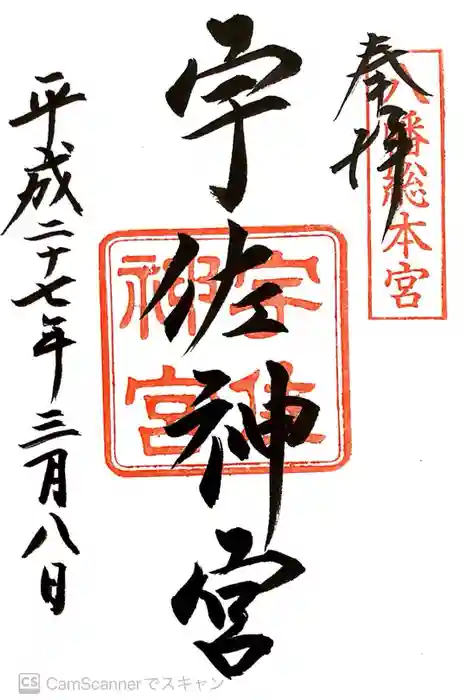 奉拝
八幡総本宮
宇佐神宮
宇佐
神宮
平成二十七年三月八日
CS CamScannerでスキャン